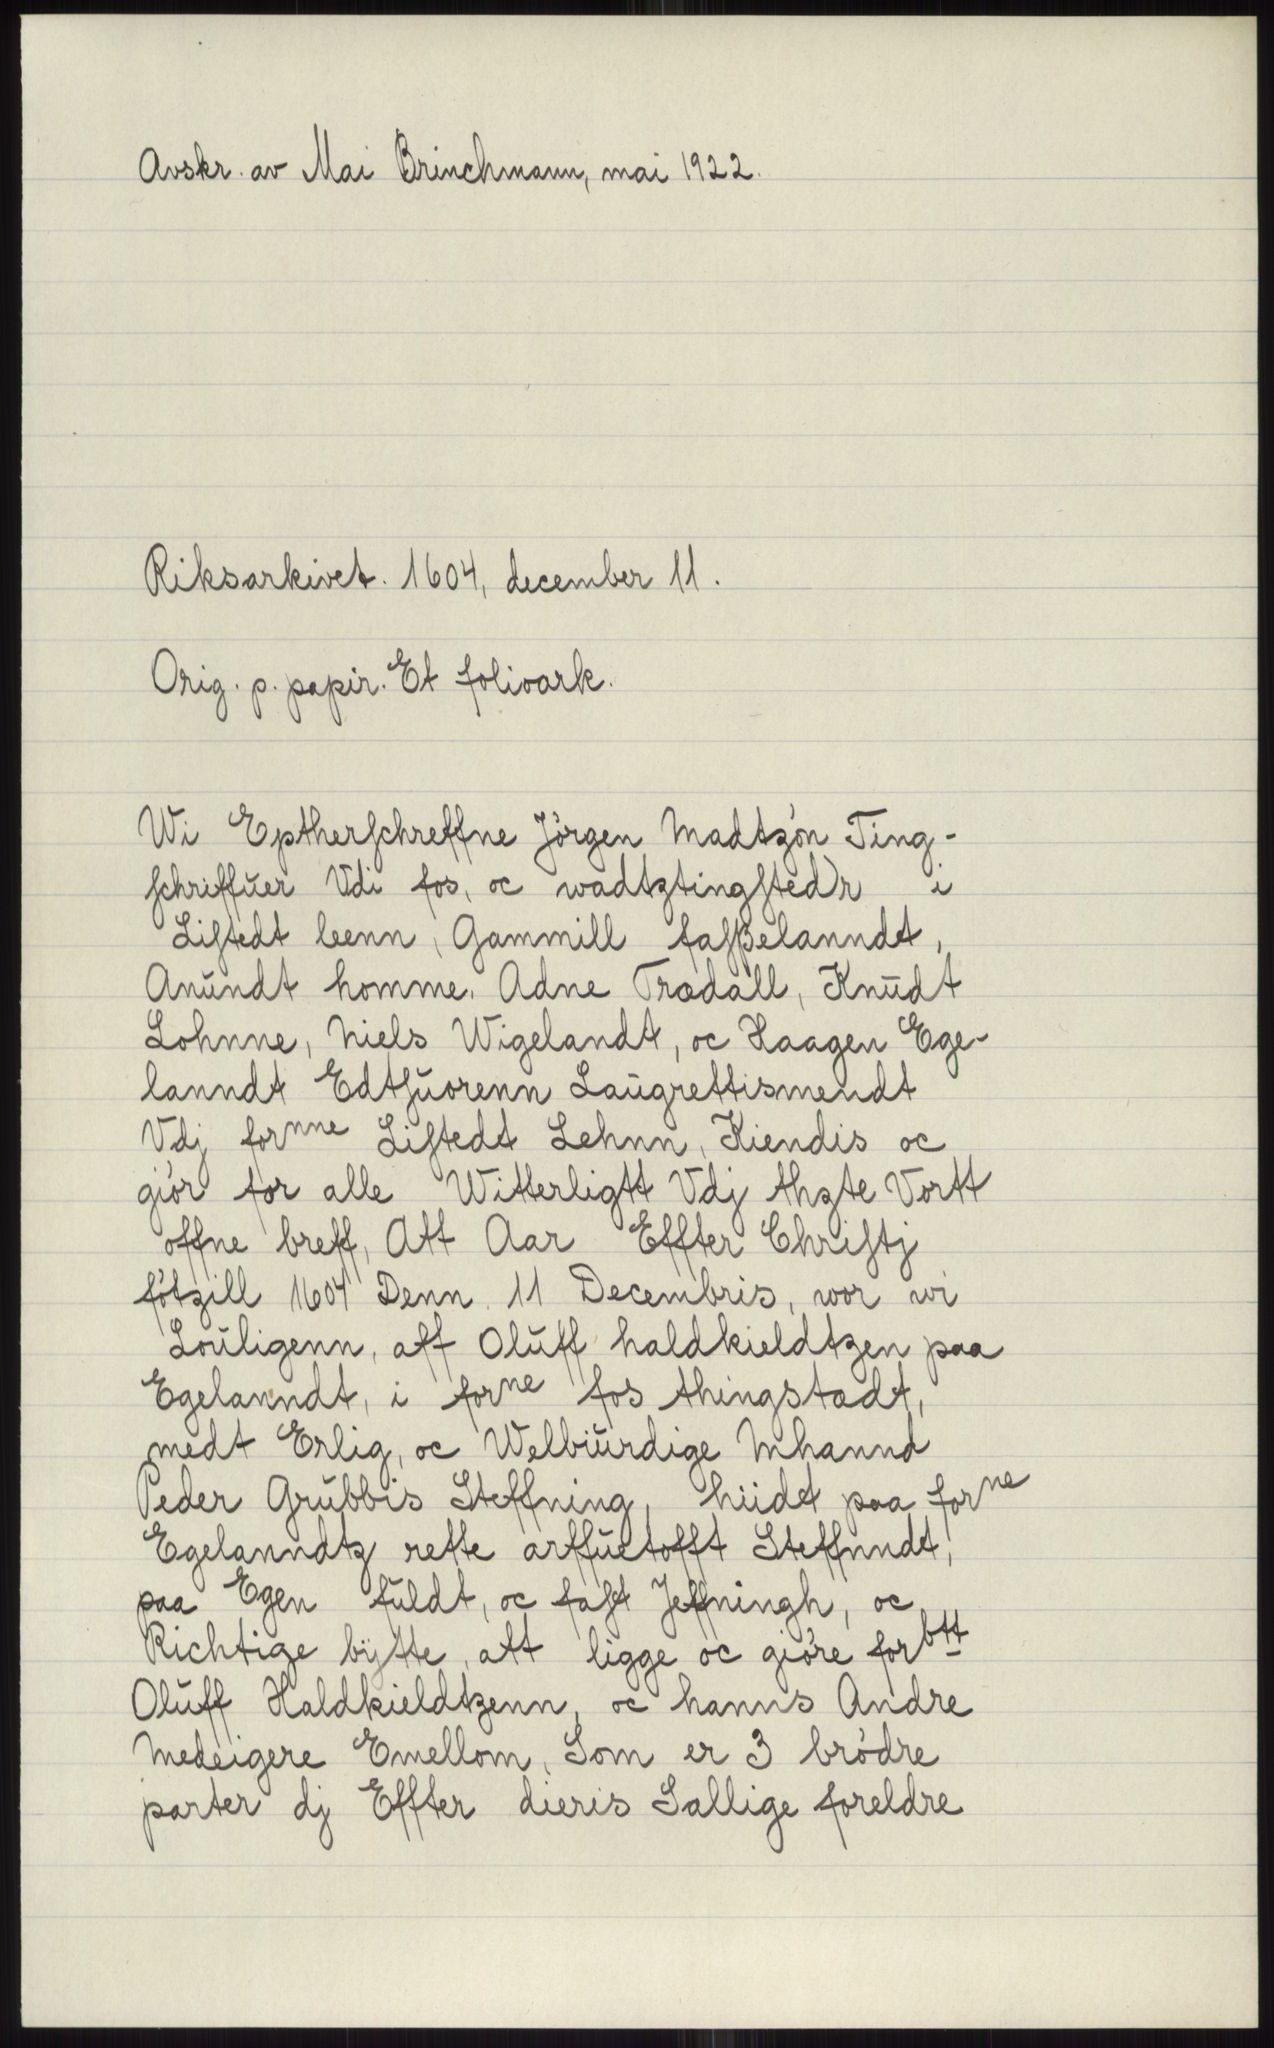 Avskr. av Mai Brinchmann, mai 1922.
Riksarkivet. 1604, december 11.
Orig. p. papir. Et folioark.
Wi Eptherſchreffne Jórgen Madtzón Ting-
ſchriffuer Vdi fos, oc wadtztingſtedr i
Liſtedt leenn, Gammill faſſelanndt,
Anundt homme, Adne Trædall, Knudt
Lohnne, Niels Wigelandt, oc Haagen Ege-
lanndt Edtſuorenn Laugrettismendt
Vdj fornne Liſtedt Lehnn, Kiendis oc
giór for alle Witterligtt Vdj thzte Vortt
offne breff, Att Aar Effter Chriſtj
fótzill 1604 Denn 11 Decembris, wor wi
Louligenn, aff Oluff haldkieldtzen paa
Egelanndt, i forne fos thingstadt,
medt Erlig, oc Welbiurdige Mhannd
Peder Grubbis Steffning, hiidt paa forne
Egelanndtz rette arffuetofft Steffnndt,
paa Egen fuldt, oc faſt Jeffningh, oc
Richtige bytte, att ligge oc gióre forbtt
Oluff Haldkieldtzenn, oc hanns Andre
Medeigere Emellom, Som er 3 bródre
parter dj Effter dieris Sallige foreldre